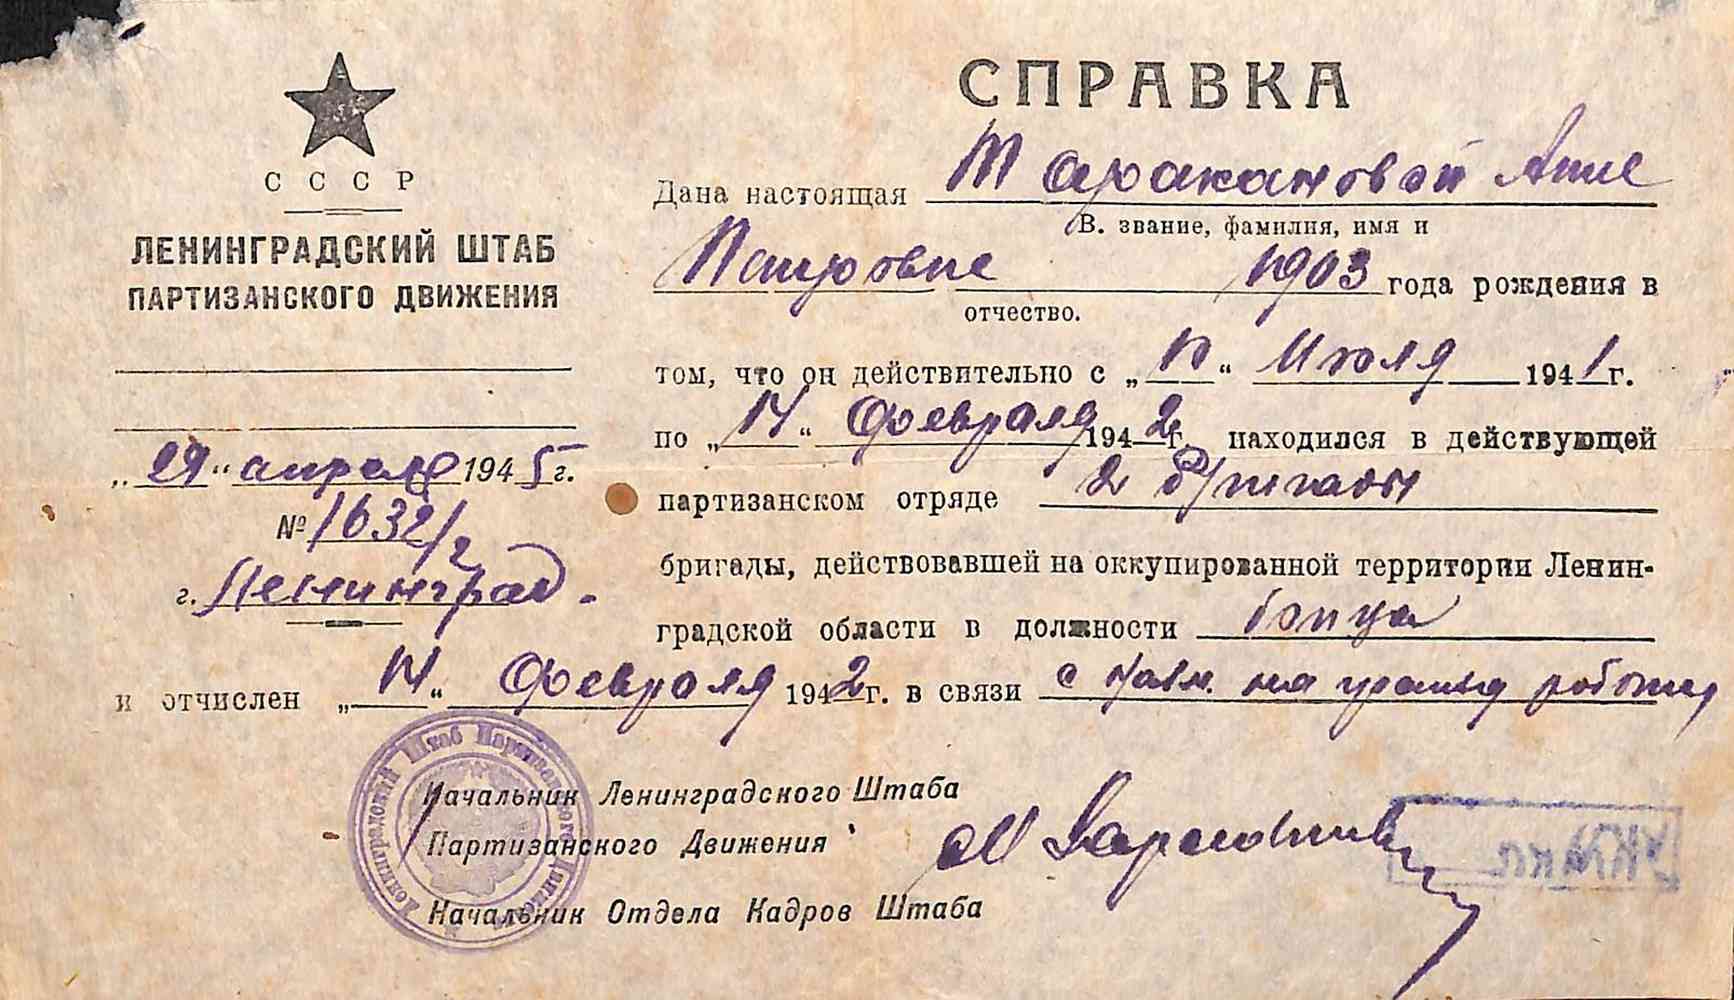 СССР
ЛЕНИНГРАДСКИЙ ШТАБ
ПАРТИЗАНСКОГО ДВИЖЕНИЯ
„29“ апреля 1945 г.
№ 1632/2
г. Ленинград.
СПРАВКА
Дана настоящая Таракановой Анне
В. звание, фамилия, имя и
Петровне 1903 года рождения в
отчество.
том, что он действительно с „10“ Июля 1941 г.
по „14“ Февраля 1942 г. находился в действующей
партизанском отряде 2 бригады
бригады, действовавшей на оккупированной территории Ленин-
градской области в должности бойца
и отчислен „14“ Февраля 1942 г. в связи с на работу
Начальник Ленинградского Штаба
Партизанского Движения
Начальник Отдела Кадров Штаба
Ленинградский Штаб Партизанского Движения